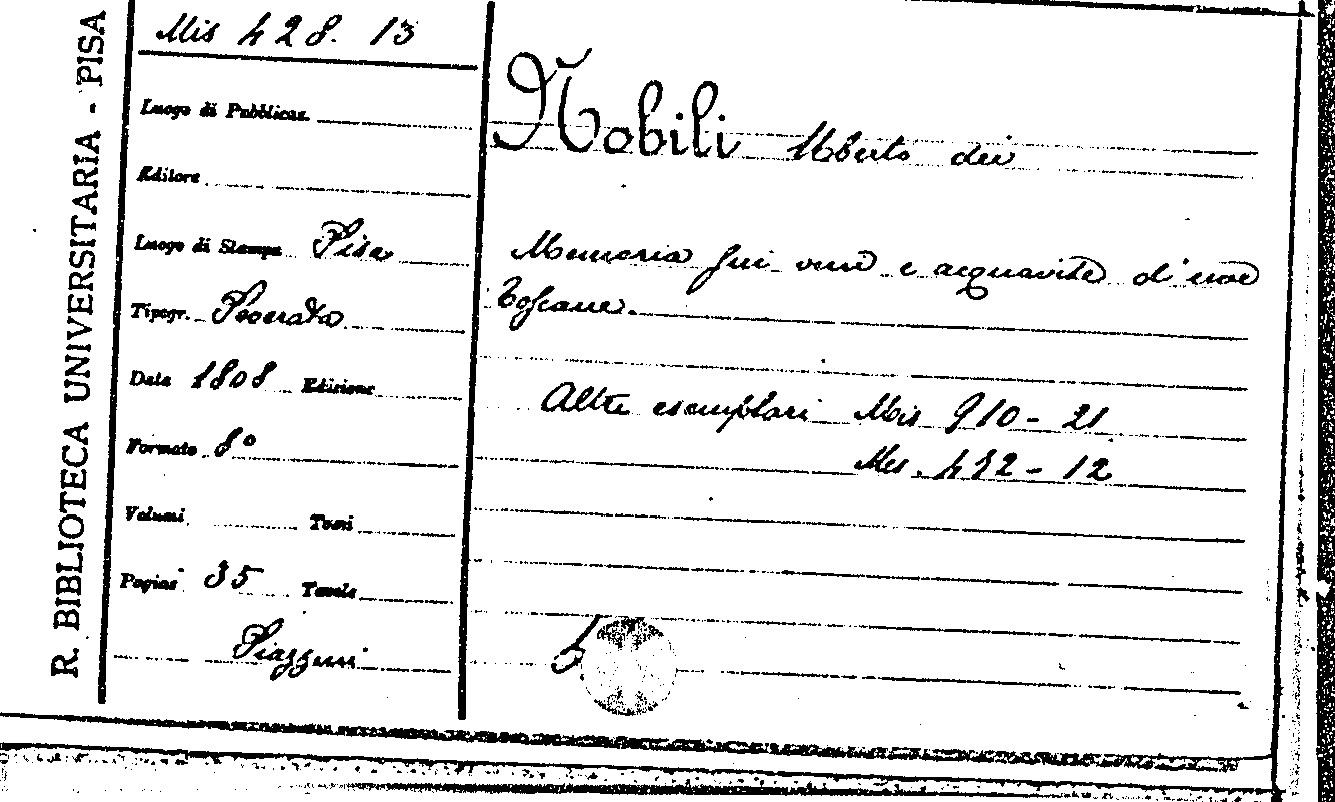 R. BIBLIOTECA UNIVERSITARIA - PISA
Mis 428. 13
Luogo di Pubblicaz.
Editore
Luogo di Stampa Pisa
Tipogr.
Data 1808 Edizione
Formato 8°
Volumi Tomi
Pagine 35 Tavole
Piazzini
Nobili Uberto dei
Memoria sui vini e acquavite d'uve
toscane.
Altre esemplari Mis 910-21
Mis. 432-12